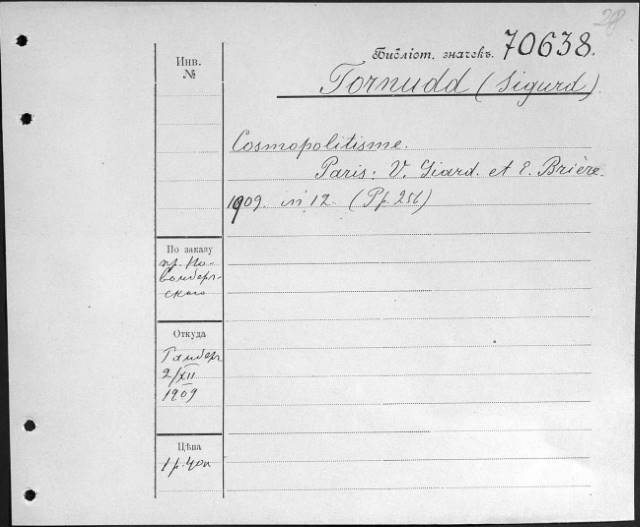 28
Библіот. значекъ. 70638.
Tornudd (Sigurd)
Инв.
№
Cosmopolitisme.
Paris: V. Giard. et E. Brière.
1909. in 12. (Pp. 256)
По заказу
пр. Но-
вомберг-
скаго
Откуда
Гамберг
2/XII
1909
Цѣна
1 р. 40 к